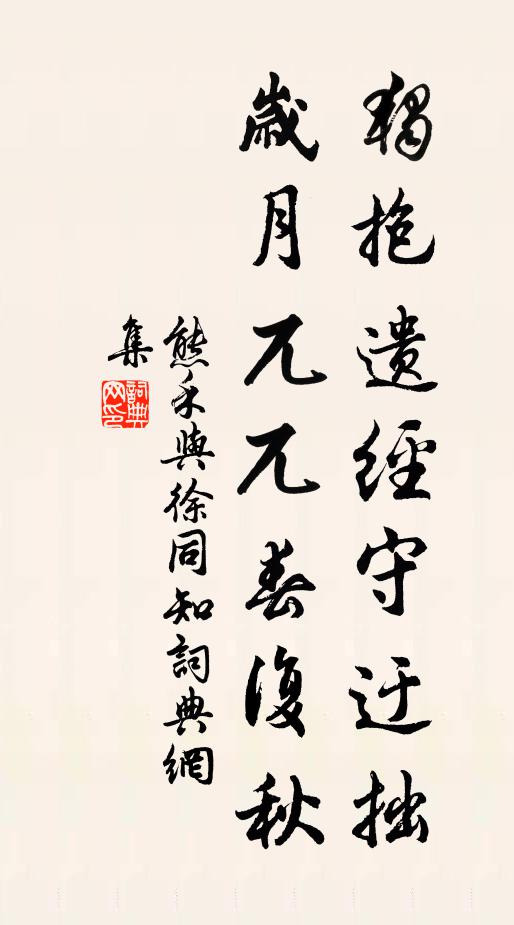 獨抱遺經守迂拙
歲月兀兀春復秋
熊禾與徐同知詞典網
集
詞典
網印